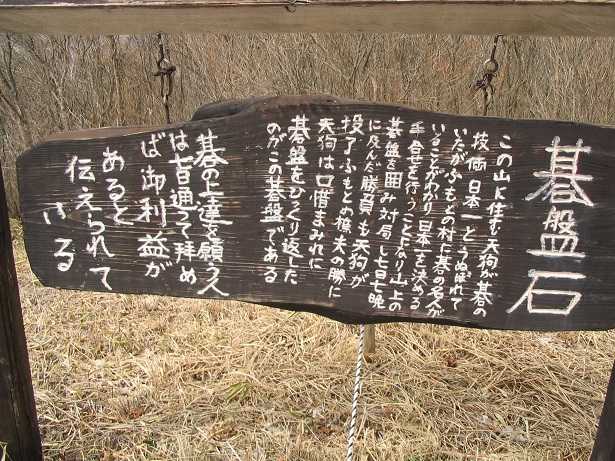 碁盤石
この山に住む天狗が碁の
技倆日本一とうぬぼれて
いたがふもとの村に碁の名人が
いることがわかり日本一を決める
手合せを行うことになり山上の
碁盤を囲み対局し七日七晩
に及んだ勝負も天狗が
投了ふもとの樵夫の勝に
天狗は口惜まみれに
碁盤をひっくり返した
のがこの碁盤である
碁の上達を願う人
は百通って拝め
ば御利益が
あると
伝えられて
いる